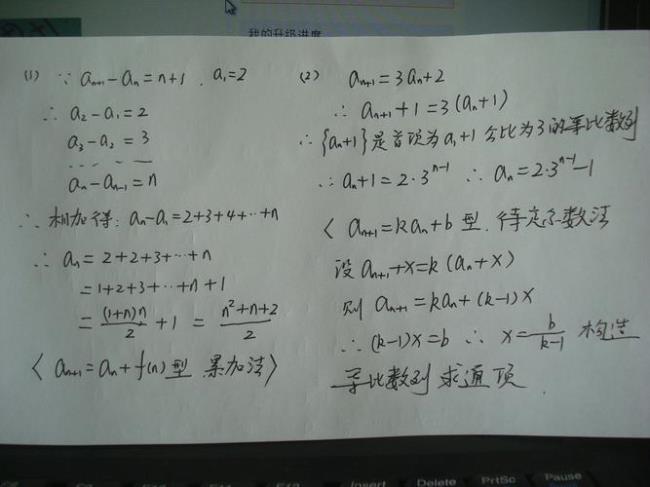 我的升级进度
(1) ∵ aₙ₊₁-aₙ=n+1 . a₁=2
∴ a₂-a₁=2
a₃-a₂=3
... ...
aₙ-aₙ₋₁=n
∴ 相加得: aₙ-a₁=2+3+4+…+n
∴ aₙ=2+2+3+…+n
=1+2+3+…+n+1
=\frac{(1+n)n}{2}+1=\frac{n²+n+2}{2}
〈 aₙ₊₁=aₙ+f(n)型 累加法〉
(2) aₙ₊₁=3aₙ+2
∴ aₙ₊₁+1=3(aₙ+1)
∴ {aₙ+1}是首项为a₁+1 公比为3的等比数列
∴ aₙ+1=2·3ⁿ⁻¹ ∴ aₙ=2·3ⁿ⁻¹-1
〈 aₙ₊₁=kaₙ+b 型. 待定系数法
设 aₙ₊₁+x=k(aₙ+x)
则 aₙ₊₁=kaₙ+(k-1)x
∴(k-1)x=b ∴ x=\frac{b}{k-1} 构造
等比数列求通项.
Insert Delete PrtSc Pause